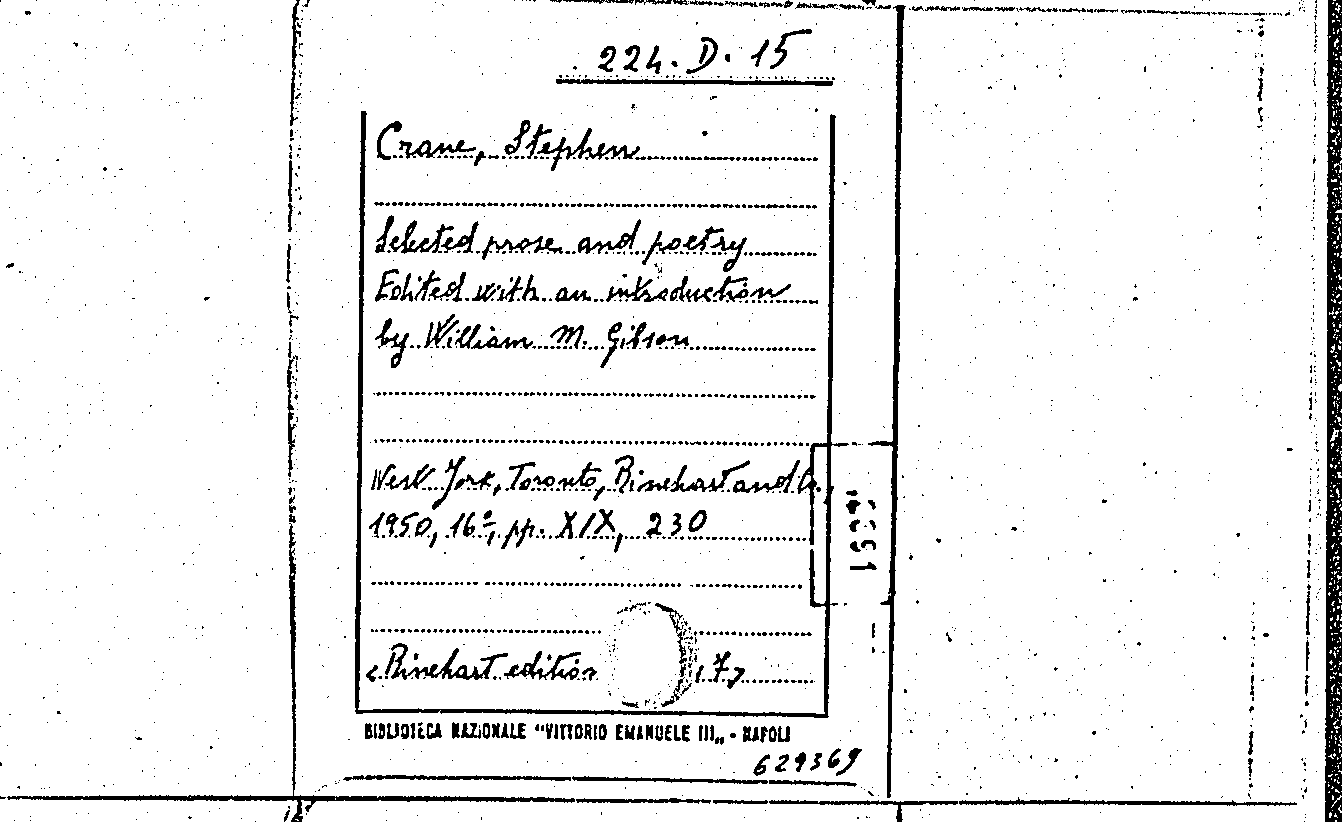 224. D. 15
Crane, Stephen
Selected prose and poetry
Edited with an introduction
by William M. Gibson
New York, Toronto, Rinehart and Co.,
1950, 16º, pp. XIX, 230
<Rinehart edition , 7>
BIBLIOTECA NAZIONALE "VITTORIO EMANUELE III„ - NAPOLI
629369